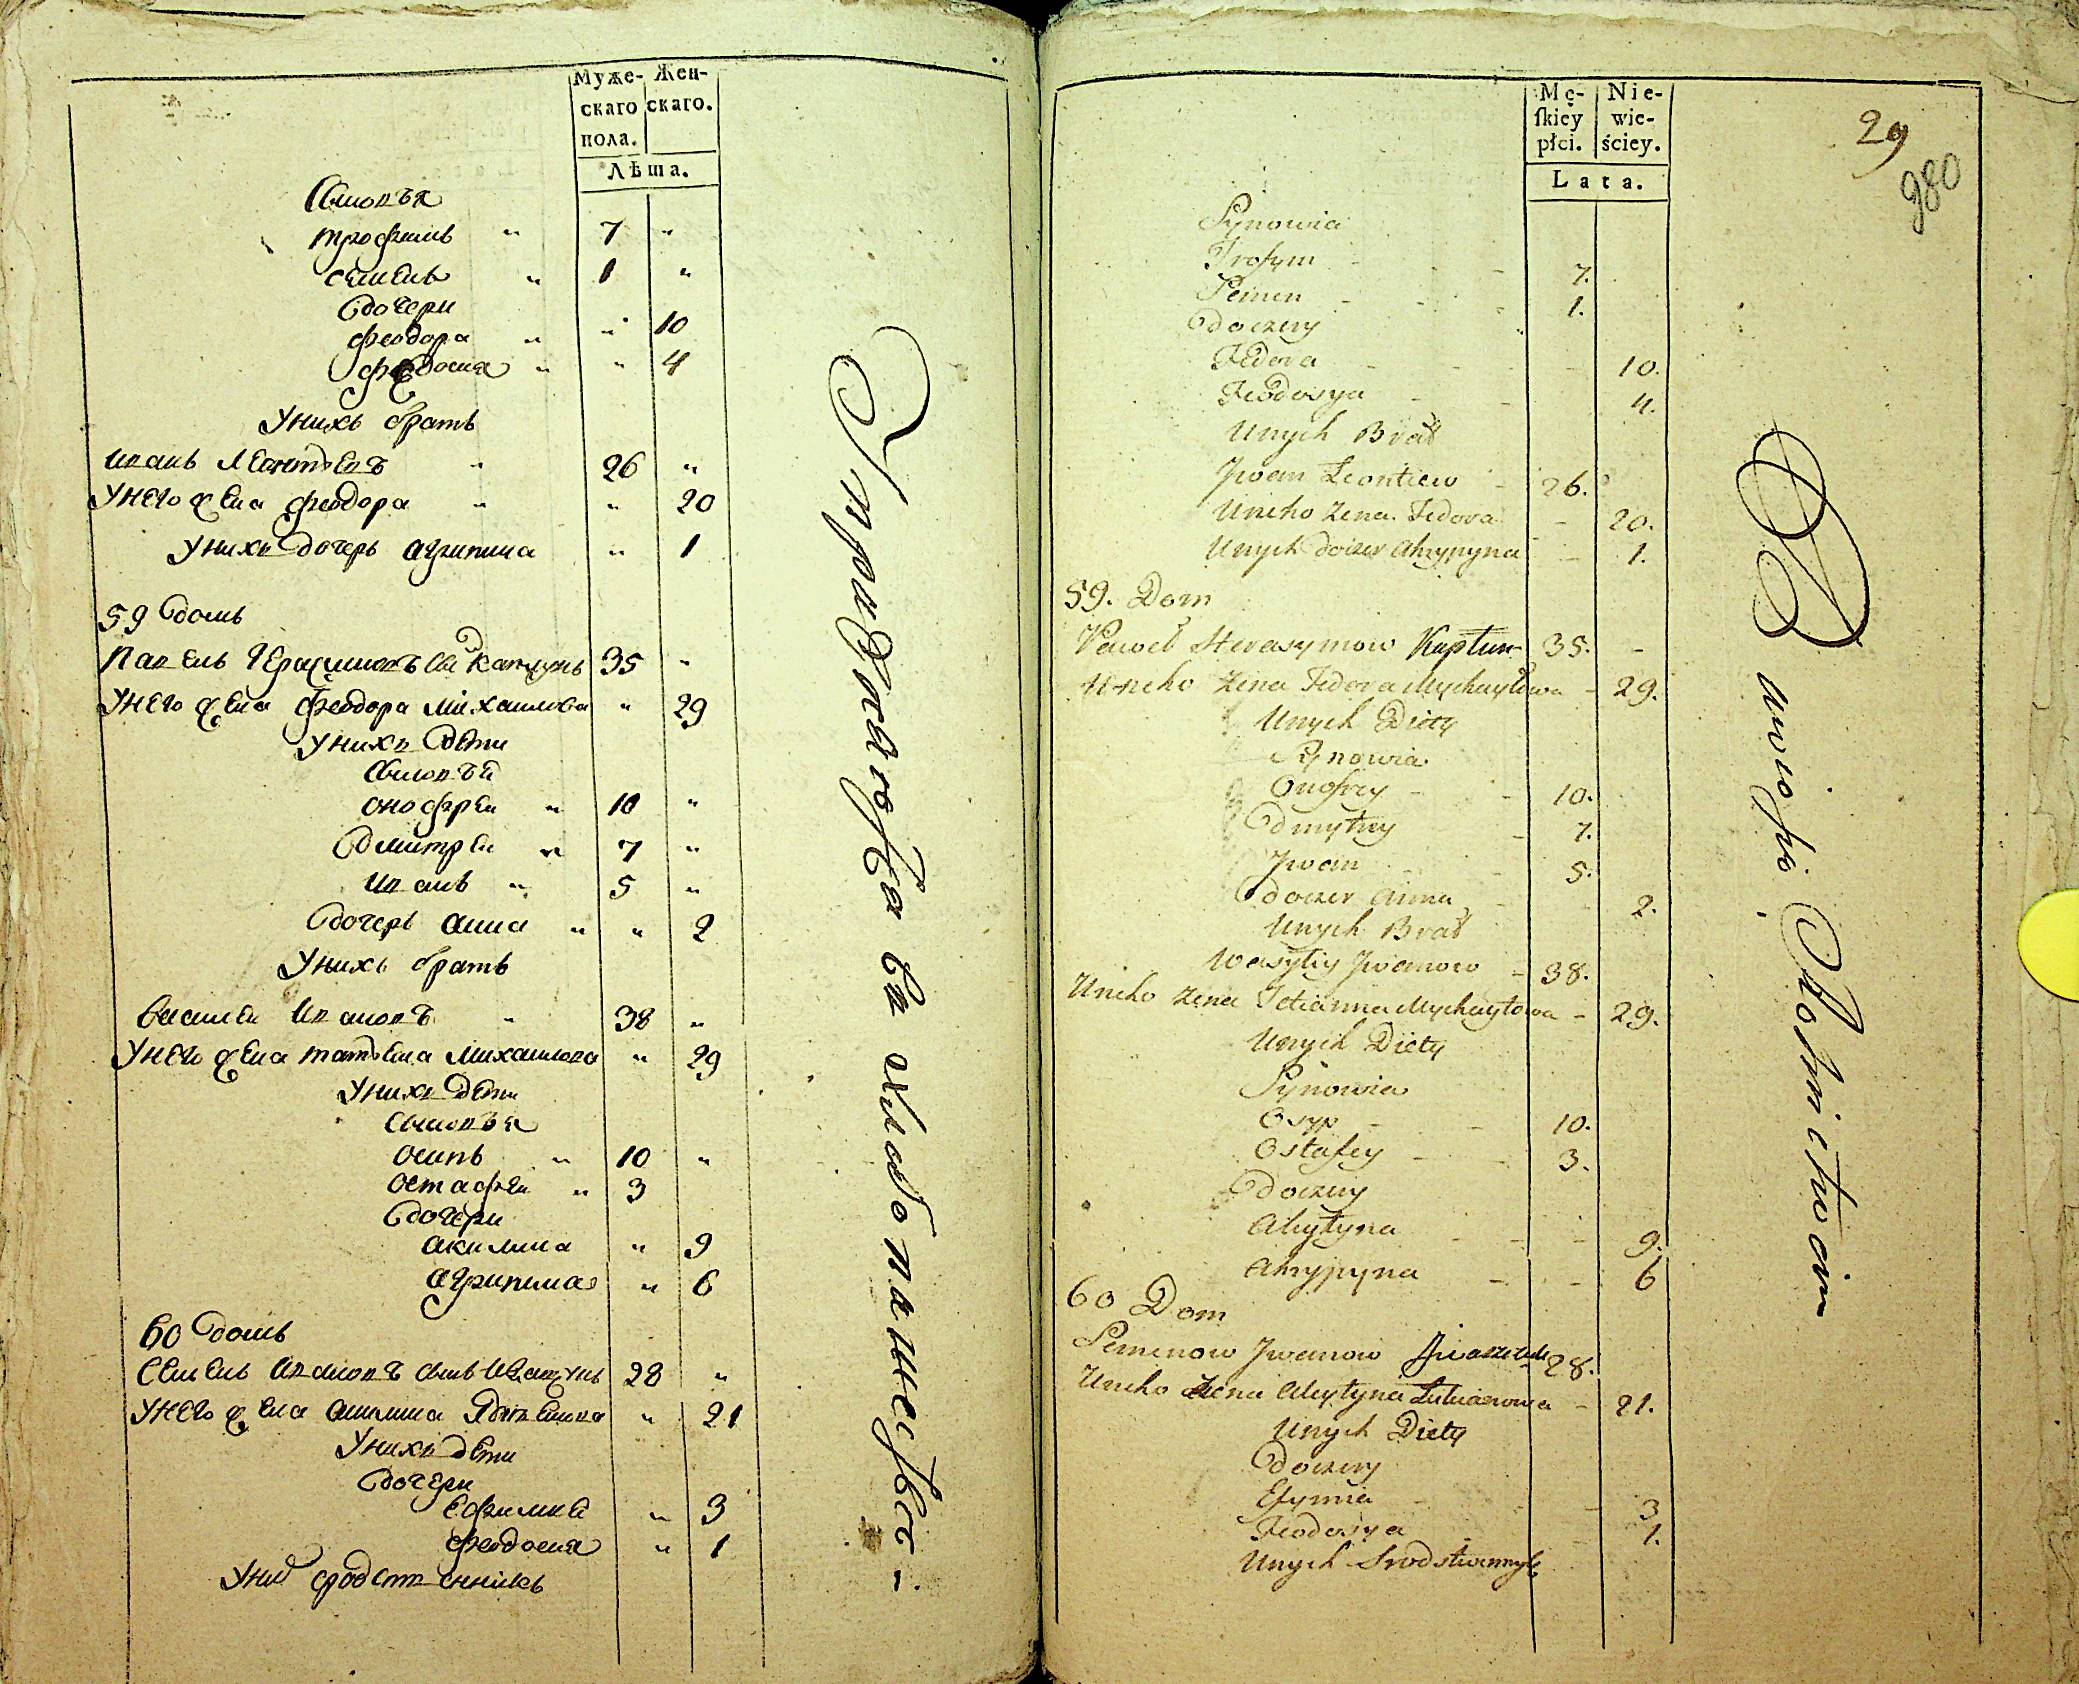 Муже- Жен-
скаго скаго.
пола.
Лѣта.
Сыновъя
трофимъ " 7 "
семенъ " 1 "
дочери
феодора " " 10
феодосия " " 4
Унихъ братъ
иванъ Леонтьевъ " 26 "
Унего жена феодора " " 20
Унихъ дочерь агрипина " 1
59 домъ
Павелъ Герасимовъ сынъ Каптунъ 35 "
Унего жена феодора михаилова " 29
Унихъ дети
Сыновъя
онофрей " 10 "
дмитрей " 7 "
иванъ " 5 "
дочерь анна " " 2
Унихъ братъ
василей Ивановъ " 38 "
Унего жена татьяна Михаилова " 29
Унихъ дети
Сыновъя
осипъ " 10 "
остафей " 3
дочери
акилина " 9
агрипина " 6
60 домъ
Семенъ Ивановъ сынъ 28 "
Унего жена акилина " 21
Унихъ дети
дочери
Ефимия " 3
феодосия " 1
Уних сродственникъ
въ
Mę- Nie-
ſkiey wie-
płci. ściey.
Lata.
29
980
Synowia
Trofym - - 7.
Semen - - 1.
doczery
Fedora - - 10.
Feodosya - - 4.
Unych Brat
Jwan Leontiew - 26.
Uneho żena Fedora - 20.
Unych doczer Ahrypyna - 1.
59. Dom
Paweł Herasymow Kaptun 35. -
Uneho żena Fedora Mychayłowa - 29.
Unych Diety
Synowia
Onofrey - - 10.
dmytrey - 7.
Jwan - - 5.
doczer anna - - 2.
Unych Brat
Wasyliy Jwanow - 38.
Uneho żena Tetianna Mychayłowa - 29.
Unych Diety
Synowia
Osyp - - 10.
Ostafey - - 3.
doczery
Akytyna - - - 9.
Ahrypyna - - 6
60 Dom
Semenow Jwanow 28.
Uneho żena Akytyna - 21.
Unych Diety
doczery
Efymia - - - 3
Feodosya - - 1.
Unych Srodstwennyk